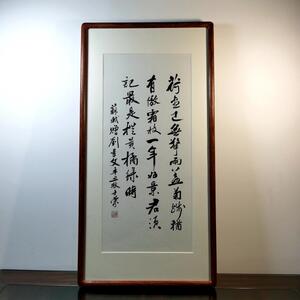 荷盡已無擎雨蓋菊殘猶
有傲霜枝一年好景君須
記最是橙黃橘綠時
蘇軾贈劉景文